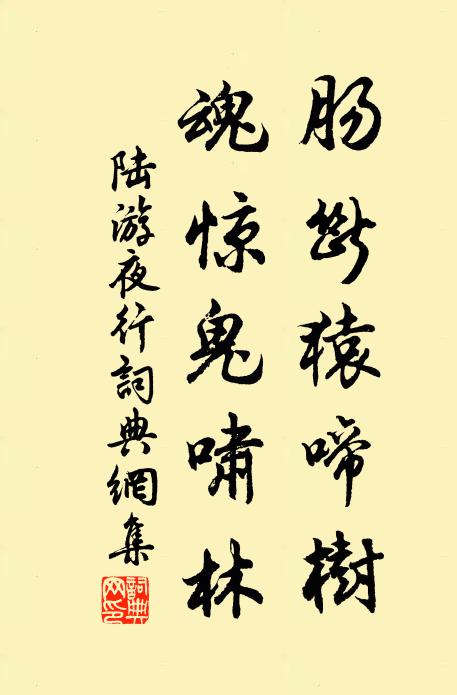 肠断猿啼樹
魂惊鬼嘯林
陆游夜行詞典網集
詞典网印